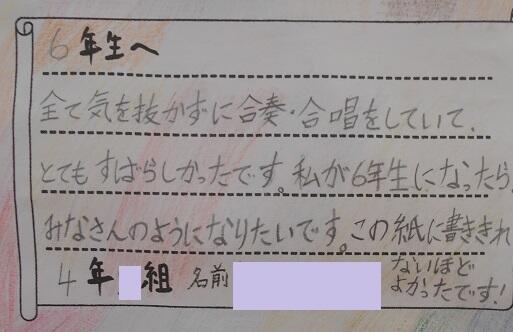 6年生へ
全て気を抜かずに合奏・合唱をしていて、
とてもすばらしかったです。私が6年生になったら
みなさんのようになりたいです。この紙に書ききれ
ないほど
よかったです!
4年 組 名前